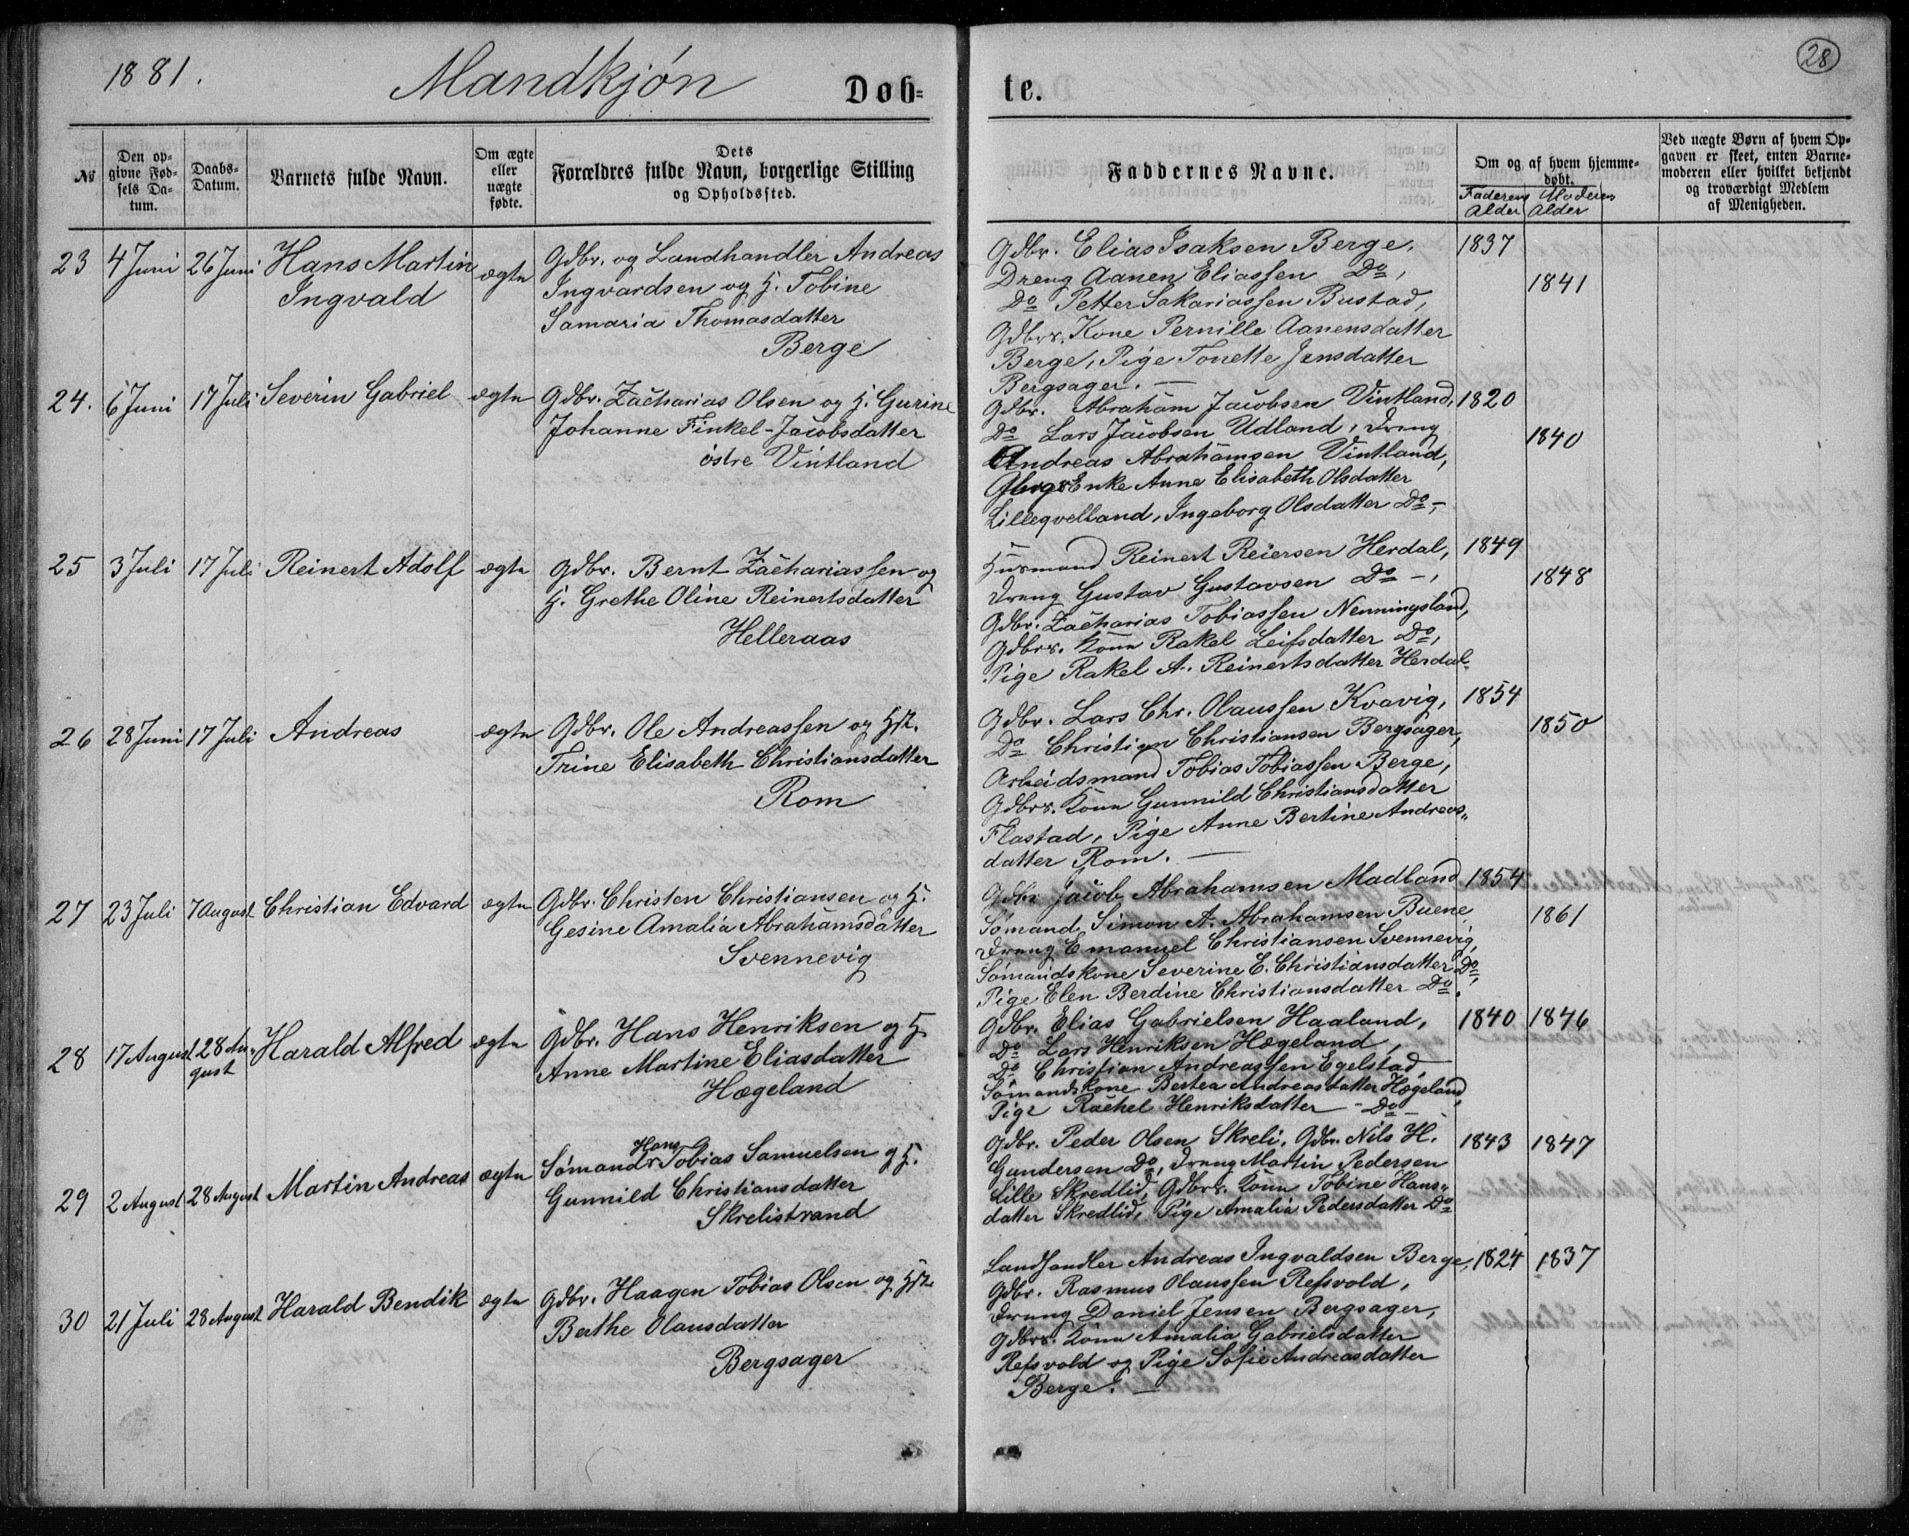 1881.
Mandkjøn
Døb-
te.
28
№
Den op-
givne Fød-
sels Da-
tum.
Daabs-
Datum.
Barnets fulde Navn.
Om ægte
eller
uægte
fødte.
Dets
Forældres fulde Navn, borgerlige Stilling
og Opholdssted.
Faddernes Navne.
Om og af hvem hjemme-
døbt.
Faderens Moderens
Alder Alder
Ved uægte Børn af hvem Op-
gaven er skeet, enten Barne-
moderen eller hvilket bekjendt
og troværdigt Medlem
af Menigheden.
23
4 Juni
26 Juni
Hans Martin
Ingvald
ægte
Gdbr. og Landhandler Andreas
Ingvardsen og H. Tobine
Samaria Thomasdatter
Berge
Gdbr. Elias Isaksen Berge,
Dreng Aanen Eliassen Do,
Do Petter Sakariassen Bustad,
Gdbrs. Kone Pernille Aanensdatter
Berge, Pige Tonette Jensdatter
Bergsager. —
1837
1841
24.
6 Juni
17 Juli
Severin Gabriel
ægte
Gdbr. Zacharias Olsen og H. Gurine
Johanne Finkel-Jacobsdatter
østre Vintland
Gdbr. Abraham Jacobsen Vintland,
Do Lars Jacobsen Udland, Dreng
Andreas Abrahamsen Vintland,
Enke Anne Elisabeth Olsdatter
Lilleqvelland, Ingeborg Olsdatter Do —,
1820
1840
25
3 Juli
17 Juli
Reinert Adolf
ægte
Gdbr. Bernt Zachariassen og
H. Grethe Oline Reinertsdatter
Helleraas
Husmand Reinert Reiersen Herdal,
Dreng Gustav Gustavsen Do —,
Gdbr. Zacharias Tobiassen Nenningsland,
Gdbrs. Kone Rakel Leifsdatter Do,
Pige Rakel A. Reinertsdatter Herdal.
1849
1848
26
28 Juni
17 Juli
Andreas
ægte
Gdbr. Ole Andreassen og Hst.
Trine Elisabeth Christiansdatter
Rom
Gdbr. Lars Chr. Olaussen Kvavig,
Do Christian Christiansen Bergsager,
Arbeidsmand Tobias Tobiassen Berge,
Gdbrs. Kone Gunnild Christiansdatter
Flastad, Pige Anne Bertine Andreas-
datter Rom. —
1854
1850
27
23 Juli
7 August
Christian Edvard
ægte
Gdbr. Christen Christiansen og H.
Gesine Amalia Abrahamsdatter
Svennevig
Gdbr Jacob Abrahamsen Madland
Sømand Simon A. Abrahamsen Buene
Dreng Emanuel Christiansen Svennevig,
Sømandskone Severine E. Christiansdatter Do,
Pige Elen Berdine Christiansdatter Do.
1854
1861
28
17 August
28 Au-
gust
Harald Alfred
ægte
Gdbr. Hans Henriksen og H.
Anne Martine Eliasdatter
Hægeland
Gdbr. Elias Gabrielsen Haaland,
Do Lars Henriksen Hægeland,
Do Christian Andreassen Egelstad,
Sømandskone Bertea Andreasdatter Hægeland,
Pige Rachel Henriksdatter — Do —
1840
1846
29
2 August
28 August
Martin Andreas
ægte
Hans
Sømand Tobias Samuelsen og H.
Gunnild Christiansdatter
Skrelistrand
Gdbr. Peder Olsen Skreli, Gdbr. Nils H.
Gundersen Do, Dreng Martin Pedersen
Lille Skredlid, Gdbrs. Kone Tobine Hans-
datter Skredlid, Pige Amalia Pedersdatter Do
1843
1847
30
21 Juli
28 August
Harald Bendik
ægte
Gdbr. Haagen Tobias Olsen og Hst.
Berthe Olausdatter
Bergsager
Landhandler Andreas Ingvaldsen Berge,
Gdbr. Rasmus Olaussen Refsvold,
Dreng Daniel Jensen Bergsager,
Gdbrs. Kone Amalia Gabrielsdatter
Refsvold og Pige Sofie Andreasdatter
Berge. —
1824
1837